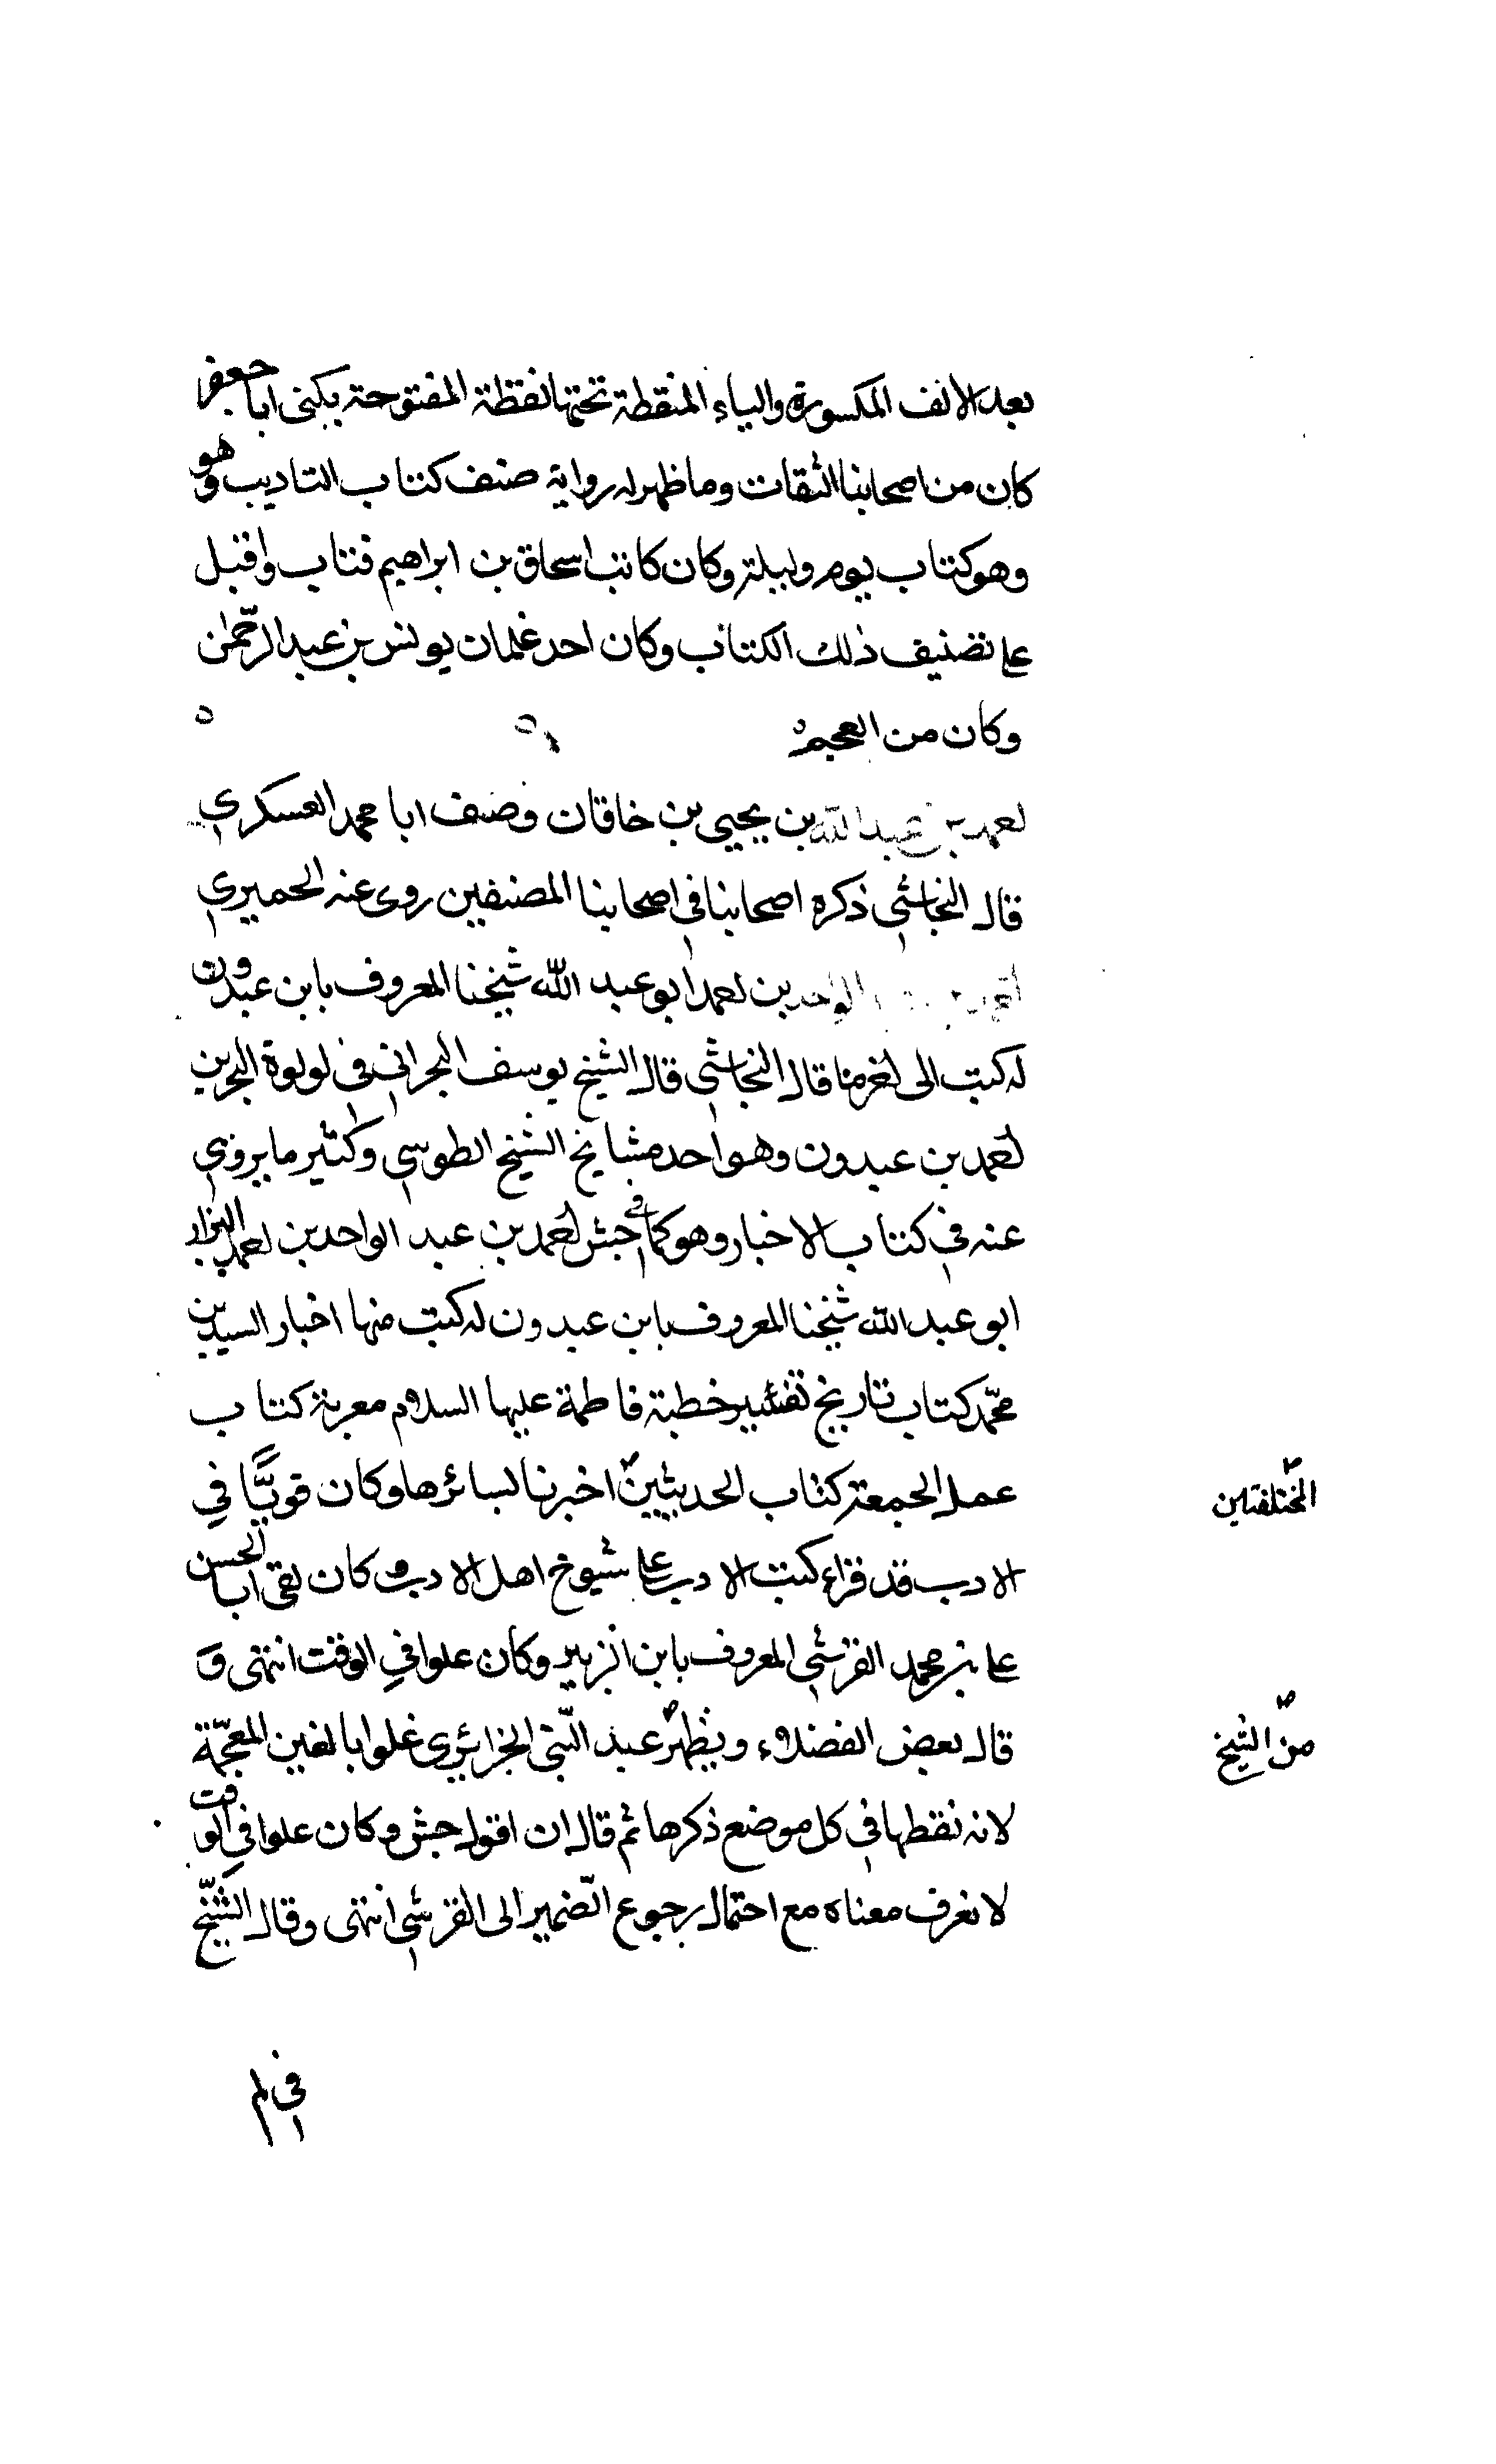 بعد الالف المكسورة والياء المنقطة تحتها نقطة المفتوحة يكنى ابا جعفر
كان من اصحابنا الثقات وما ظهر له رواية صنف كتاب التاديب وهو
وهو كتاب يوم وليلة وكان كاتب اسحاق بن ابراهيم فتاب واقبل
على تصنيف ذلك الكتاب وكان احد غلمان يونس بن عبد الرحمن
وكان من العجم
احمد بن عبد الله بن يحيى بن خاقان وصف ابا محمد العسكري
قال النجاشي ذكره اصحابنا في اصحابنا المصنفين روى عنه الحميري
الواحد بن احمد ابو عبد الله شيخنا المعروف بابن عبدون
له كتب الى اخر ما قال النجاشي قال الشيخ يوسف البحراني في لولوة البحرين
احمد بن عبدون وهو احد مشايخ الشيخ الطوسي وكثير ما يروي
عنه في كتاب الاخبار وهو كما في جش احمد بن عبد الواحد بن احمد البزاز
ابو عبد الله شيخنا المعروف بابن عبدون له كتب منها اخبار السيد بن
محمد كتاب تاريخ تفسير خطبة فاطمة عليها السلام معربة كتاب
عمل الجمعة كتاب الحديثين اخبرنا بسائرها وكان قويًّا في
المختلفتين
الادب قد قراء كتب الادب على شيوخ اهل الادب وكان لقى ابا الحسن
على بن محمد القرشي المعروف بابن الزبير وكان علوا في الوقت انتهى و
قال بعض الفضلاء ويظهر عبد النبي الجزائري غلوا بالغين المعجمة
من الشيخ
لانه نقطها في كل موضع ذكرها ثم قال ان اقول جش وكان علوا في الوقت
لا نعرف معناه مع احتمال رجوع الضمير الى القرشي انتهى وقال الشيخ
في لم